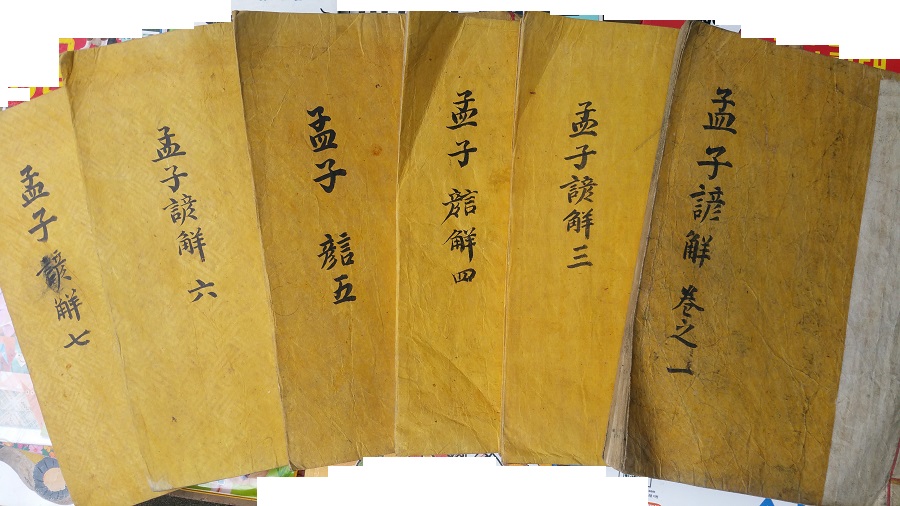 孟子諺解七
孟子諺解六
孟子諺五
孟子諺解四
孟子諺解三
孟子諺解卷之一